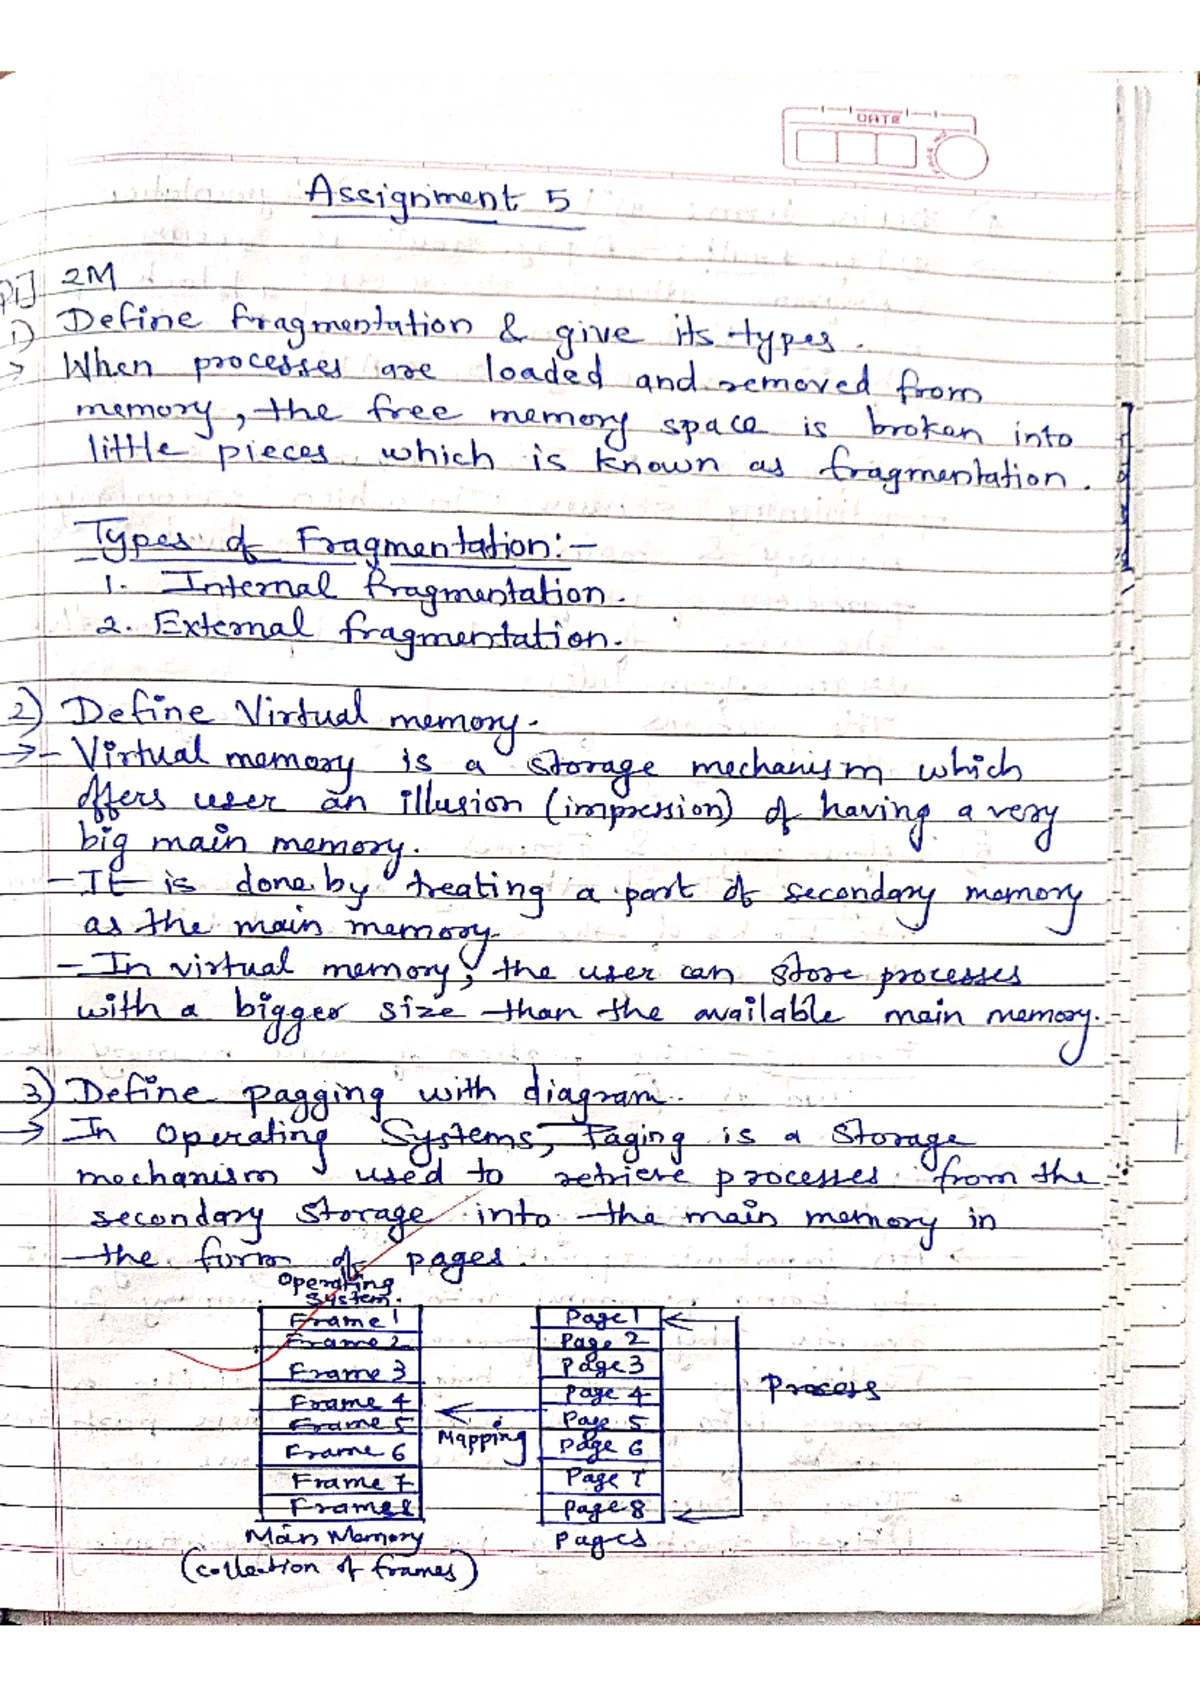 DATE
Assignment 5
2M
1) Define fragmentation & give its types.
> When processes are loaded and removed from
memory, the free memory space is broken into
little pieces which is known as fragmentation.
Types of Fragmentation:-
1. Internal fragmentation.
2. External fragmentation.
2) Define Virtual memory.
→ - Virtual memory is a storage mechanism which
offers user an illusion (impression) of having a very
big main memory.
- It is done by treating a part of secondary memory
as the main memory.
- In virtual memory, the user can store processes
with a bigger size than the available main memory.
3) Define pagging with diagram.
→ In Operating Systems, Paging is a storage
mechanism used to retrieve processes from the
secondary storage into the main memory in
the form of pages.
Operating
System.
Frame 1 Page 1
Frame 2 Page 2
Frame 3 Page 3
Process
Frame 4 Page 4
Frame 5 Page 5
Mapping
Frame 6 Page 6
Frame 7 Page 7
Frame 8 Page 8
Main Memory Pages
(collection of frames)